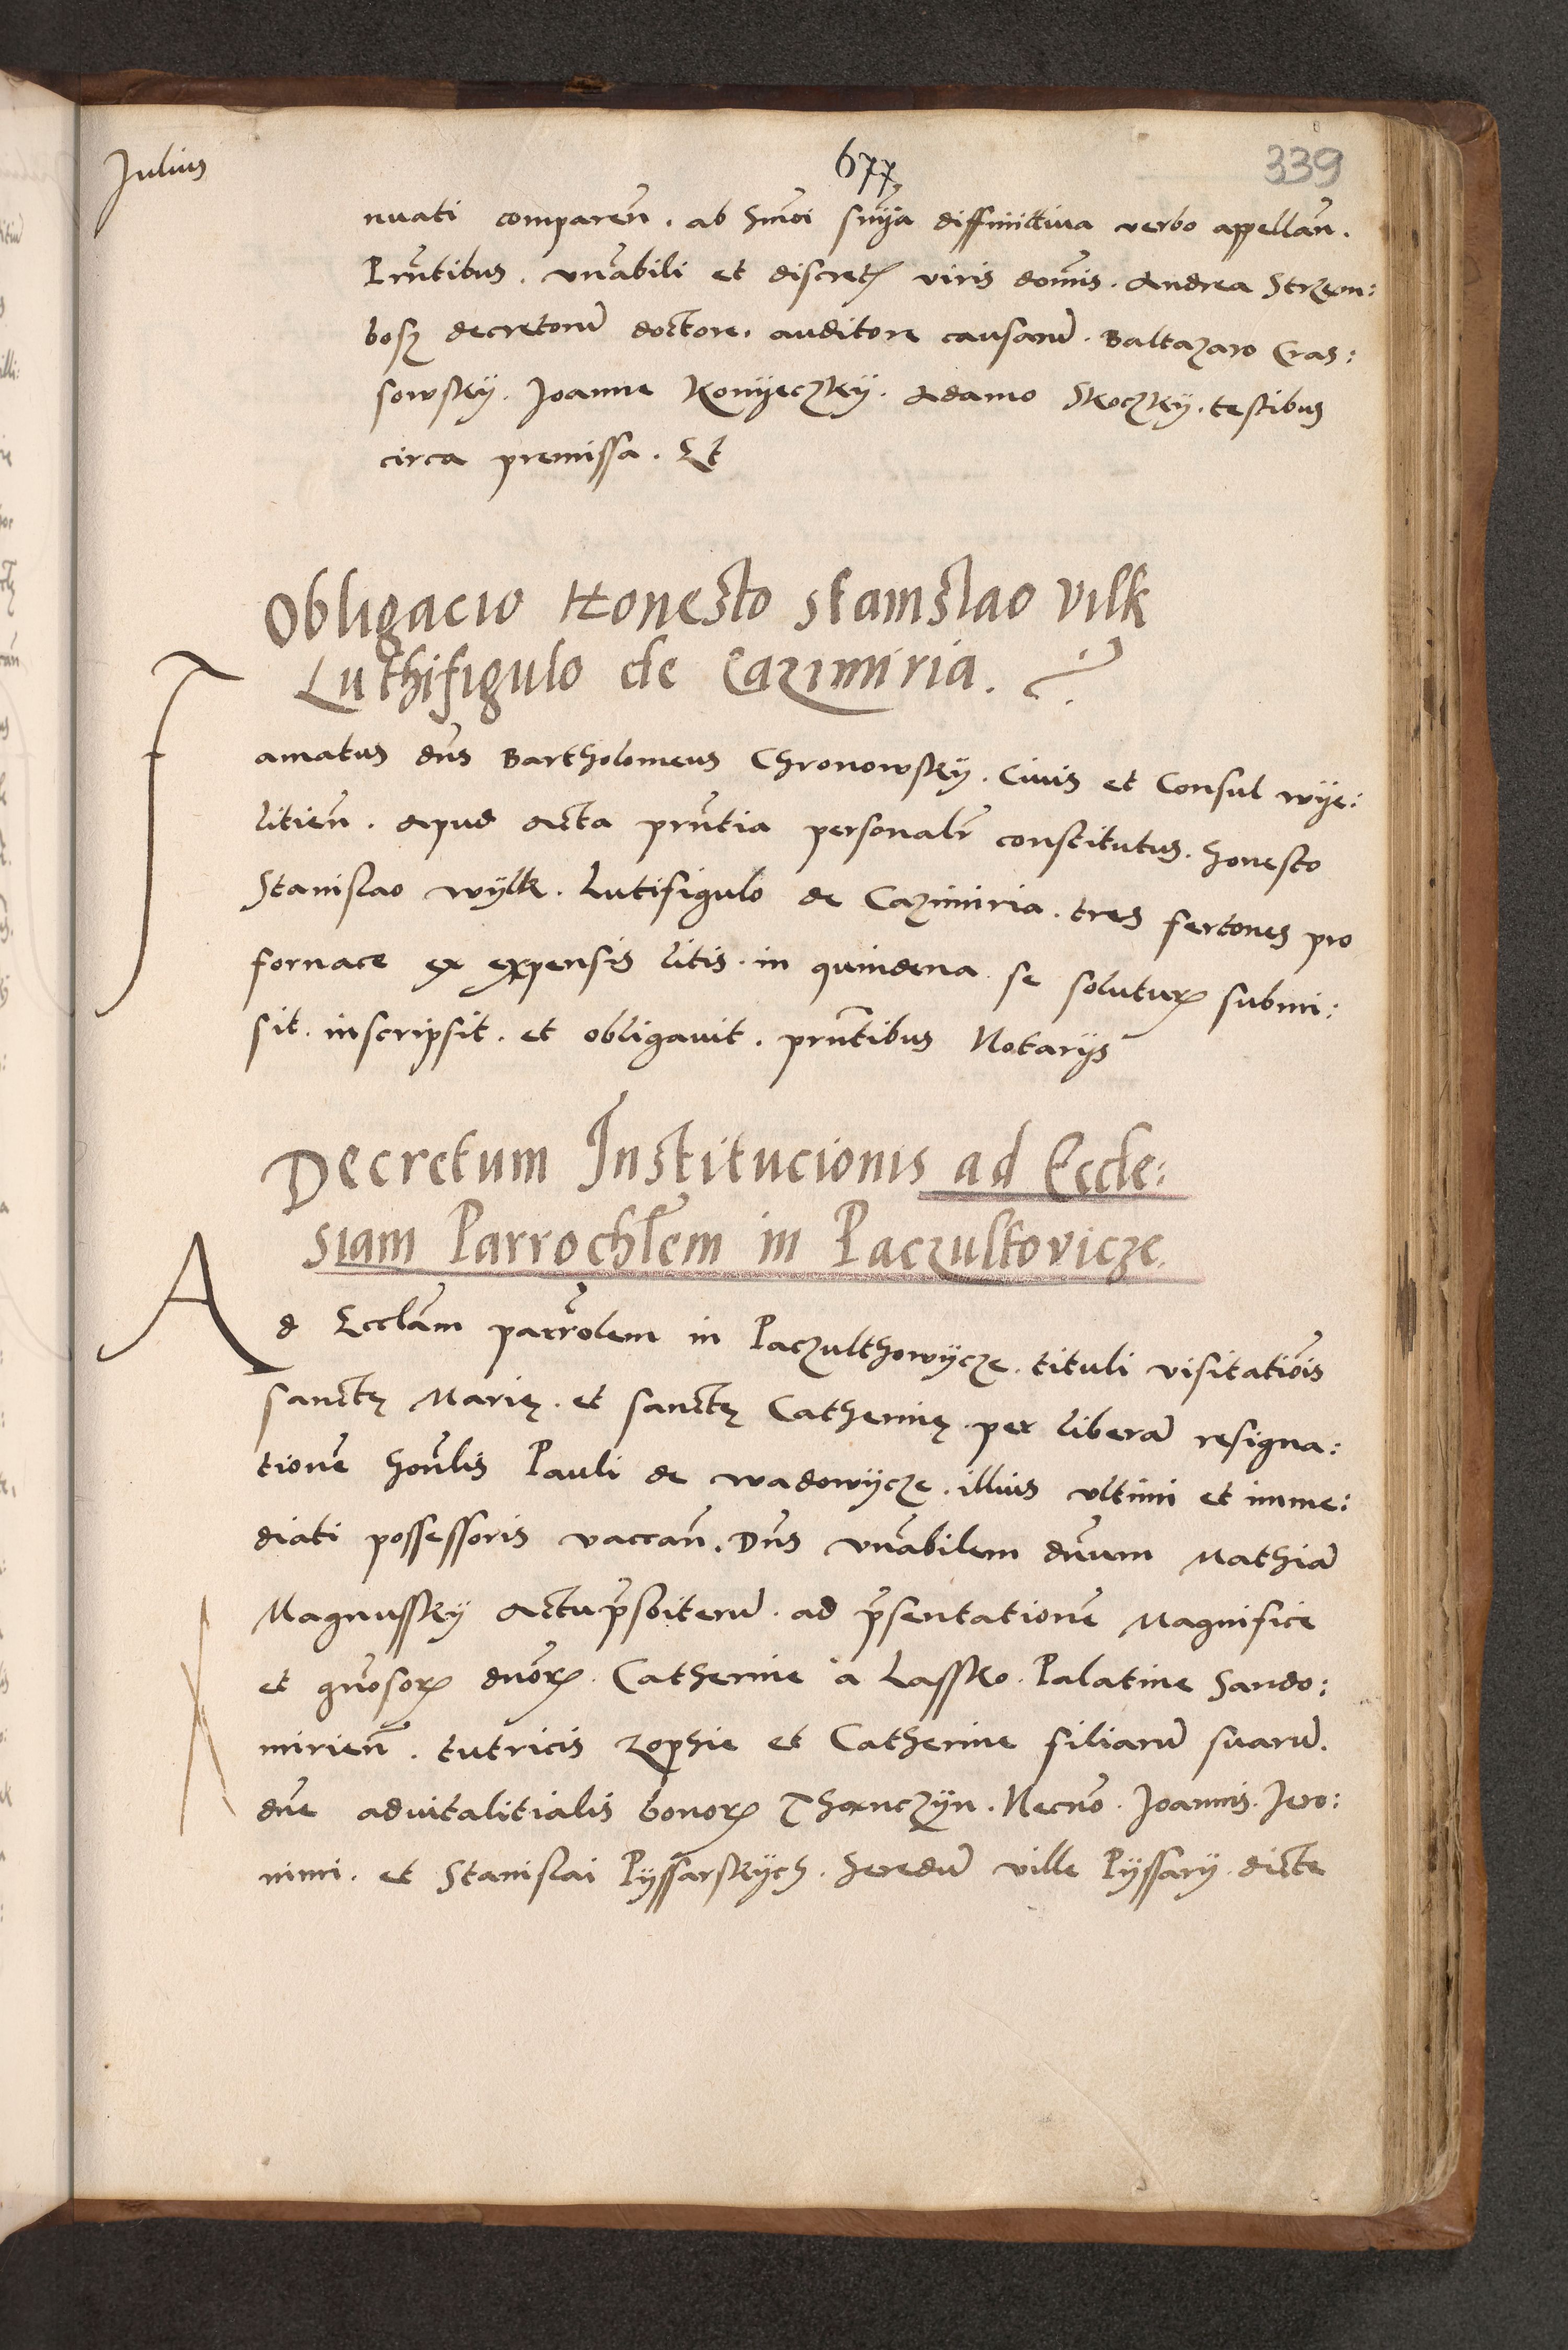 Julius
677
339
nuati comparen̄. ab hm̄oi sn̄ia diffinittiua verbo appellan̄.
Prn̄tibus. vn̄abili et discret̄ viris dom̄is. Andrea Strzem:
bosz decretorū doctore. auditore causarū. Baltazaro Cras:
sowsky. Joanne Konyeczky. Adamo Skoczky. testibus
circa premissa. Et
Obligacio Honesto Stanislao Vilk
Luthifigulo de Cazimiria.
Famatus dn̄s Bartholomeus Chronowsky. Ciuis et Consul wye:
litien̄. Apud Acta prn̄tia personalr̄ constitutus. honesto
Stanislao wylk. Lutifigulo de Cazimiria. tres fertones pro
fornace ex expensis litis. in quindena se soluturꝝ submi:
sit. inscripsit. et obligauit. prn̄tibus Notarijs
Decretum Institucionis ad Eccle:
siam Parrochl̄em in Paczultovicze.
Ad Eccl̄am parr̄olem in Paczulthowycze. tituli visitatiōis
sanctę Marię. et sanctę Catherinę. per liberā resigna:
tionē hon̄lis Pauli de wadowycze. illius vltimi et imme:
diati possessoris vaccan̄. Dn̄s vn̄abilem dn̄um Mathiā
Magnussky Actup̄sbiterū. ad p̄sentationē Magnifice
et gn̄osorꝝ dn̄orꝝ. Catherine a Lassko. Palatine Sando:
mirien̄. tutricis Zophie et Catherine filiarū suarū.
dn̄e aduitalitialis bonorꝝ Thanczyn. Necnō. Joannis. Jero:
nimi. et Stanislai Pyssarskych. heredū ville Pyssary dicte